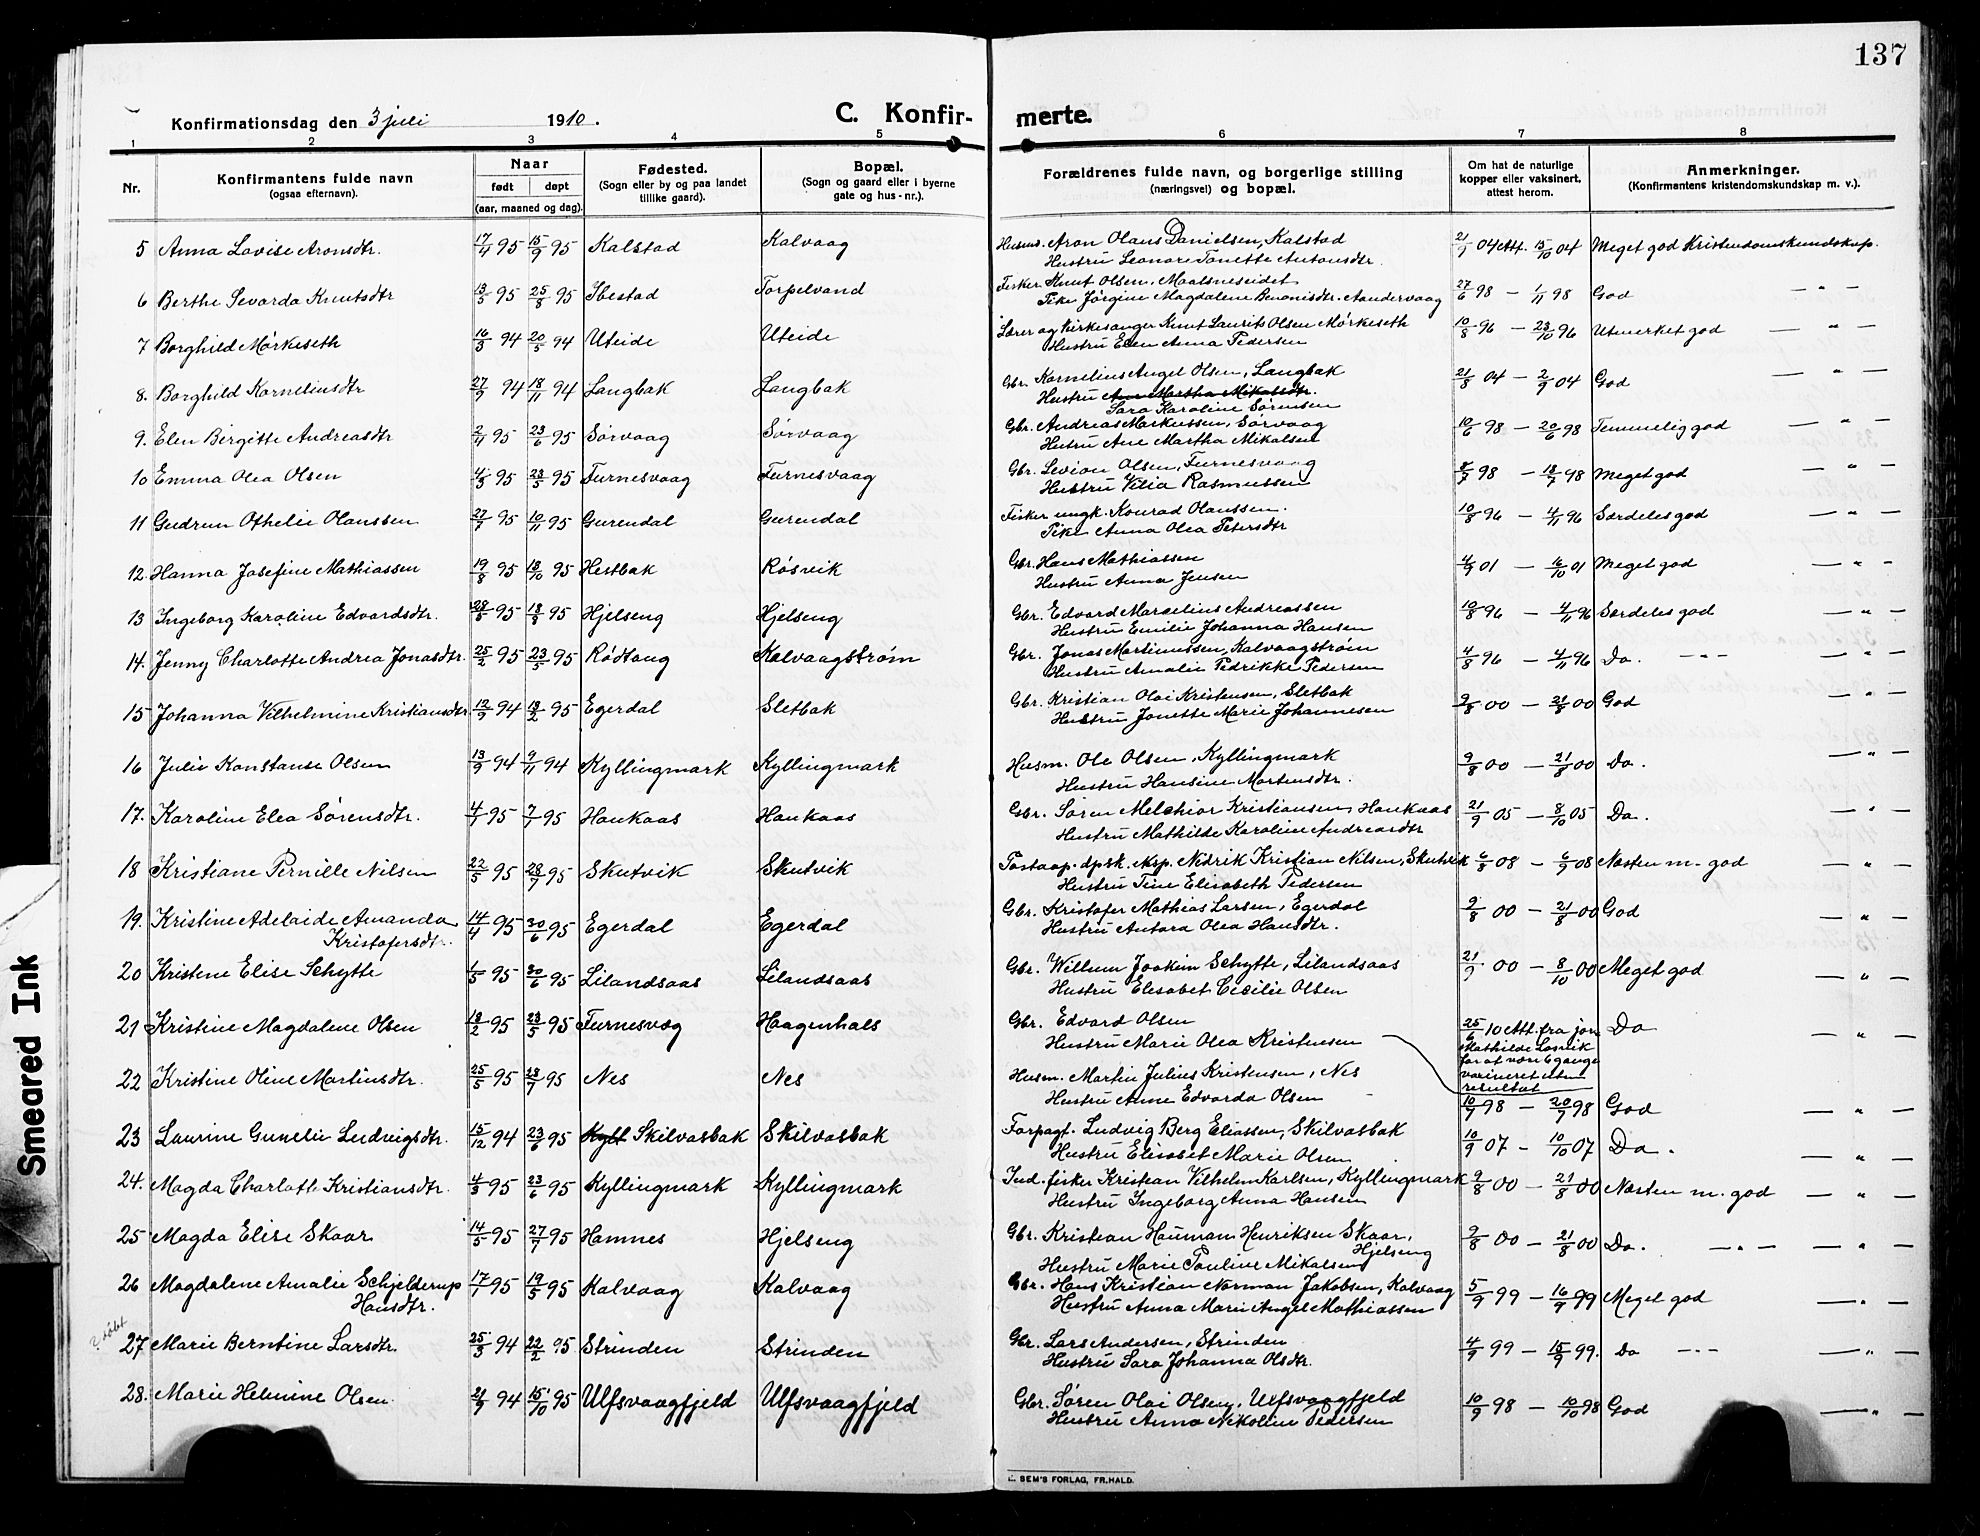 137
Konfirmationsdag den 3 juli 1910.
C. Konfir- merte.
1 2 3 4 5 6 7 8
Nr.
Konfirmantens fulde navn
(ogsaa efternavn).
Naar
født døpt
(aar, maaned og dag).
Fødested.
(Sogn eller by og paa landet
tillike gaard).
Bopæl.
(Sogn og gaard eller i byerne
gate og hus-nr.).
Forældrenes fulde navn, og borgerlige stilling
(næringsvei) og bopæl.
Om hat de naturlige
kopper eller vaksinert,
attest herom.
Anmerkninger.
(Konfirmantens kristendomskundskap m. v.).
5 Anna Lovise Aronsdtr. 17/4 95 15/9 95 Kalstad Kalvaag Husms. Aron Olaus Danielsen, Kalstad 21/9 04 Att. 15/10 04 Meget god Kristendomskundskap.
Hustru Leonore Tonette Antonsdtr.
6 Berthe Sevarda Knutsdtr 13/5 95 25/8 95 Ibestad Torpelvand Fisker Knut Olsen, Maalsneseidet 27/6 98 — 1/11 98 God — " —
Pike Jørgine Magdalene Benonisdtr. Aandervaag
7 Borghild Mørkeseth 16/3 94 20/5 94 Uteide Uteide Lærer og Kirkesanger Knut Laurits Olsen Mørkeseth 10/8 96 — 23/10 96 Utmerket god — " —
Hustru Elen Anna Pedersen
8. Borghild Korneliusdtr 27/9 94 18/11 94 Langbak Langbak Gbr. Kornelius Angel Olsen, Langbak 21/8 04 — 2/9 04 God — " —
Hustru Ane Martha Mikalsdtr.
Sara Karoline Sørensen
9. Elen Birgitte Andreasdtr 2/11 95 23/6 95 Sørvaag Sørvaag Gbr. Andreas Markussen, Sørvaag 10/6 98 — 20/6 98 Temmelig god — " —
Hutru Ane Martha Mikalsen
10 Emma Olea Olsen 4/3 95 23/5 95 Furnesvaag Furnesvaag Gbr. Levion Olsen, Furnesvaag 8/7 98 — 18/7 98 Meget god — " —
Hustru Vilia Rasmussen
11 Gudrun Othelie Olanssen 27/7 95 10/11 95 Gurendal Gurendal Fisker ungk. Konrad Olanssen. 10/8 96 — 4/11 96 Særdeles god — " —
Pike Anna Olea Petersdtr
12 Hanna Josefine Mathiassen 19/8 95 13/10 95 Hestbak Røsvik Gbr. Hans Mathiassen 4/9 01 — 6/10 01 Meget god — " —
Hustru Anna Jensen
13 Ingeborg Karoline Edvardsdtr. 28/5 95 18/8 95 Hjelseng Hjelseng Gbr. Edvard Marselius Andreassen 10/8 96 — 4/11 96 Særdeles god — " —
Hustru Emilie Johanna Hansen
14. Jenny Charlotte Andrea Jonasdtr. 25/2 95 23/5 95 Rødtang Kalvaagstrøm Gbr. Jonas Martinussen, Kalvaagstrøm 4/8 96 — 4/11 96 Do. — " — — " —
Hustru Amalie Fedrikke Pedersen
15 Johanna Vilhelmine Kristiansdtr 12/9 94 13/2 95 Egerdal Sletbak Gbr. Kristian Olai Kristensen, Sletbak 9/8 00 — 21/8 00 God — " —
Hustru Jonette Marie Johannesen
16 Julie Konstanse Olsen 13/9 94 9/11 94 Kyllingmark Kyllingmark Husm. Ole Olsen, Kyllingmark 9/8 00 — 21/8 00 Do. — " —
Hustru Hansine Mortensdtr.
17. Karoline Elea Sørensdtr. 4/1 95 7/7 95 Haukaas Haukaas Gbr. Søren Melchior Kristiansen, Haukaas 21/9 05 — 8/10 05 Do. — " —
Hustru Mathilde Karoline Andreasdtr
18 Kristiane Pernille Nilsen 22/5 95 28/7 95 Skutvik Skutvik Postaap. dpsk. eksp. Nidrik Kristian Nilsen, Skutvik 6/8 08 — 6/9 08 Næsten m. god — " —
Hustru Tine Elisabeth Pedersen
19. Kristine Adelaide Amanda 14/4 95 30/6 95 Egerdal Egerdal Gbr. Kristofer Mathias Larsen, Egerdal 9/8 00 — 21/8 00 God — " —
Kristofersdtr. Hustru Antora Olea Hansdtr.
20 Kristine Elise Schytte 1/5 95 30/6 95 Lilandsaas Lilandsaas Gbr. Willum Joakim Schytte, Lilandsaas 21/9 00 — 8/10 00 Meget god — " —
Hustru Elisabet Cecilie Olsen
21 Kristine Magdalene Olsen 18/2 95 23/5 95 Furnesvæg Haagenhals Gbr. Edvard Olsen 25/6 10 Att. fra jor. Do — " —
Hustru Marie Olea Kristensen Mathilde Løsvik
for at være 6 gange
vaxineret uten
resultat
22 Kristine Oline Martinsdtr. 25/5 95 28/7 95 Nes Nes Husm. Martin Julius Kristensen, Nes
Hustru Anne Edvarda Olsen 10/7 98 — 20/7 98 God — " —
23 Laurine Gunelie Ludvigsdtr. 15/12 94 23/6 95 Kyll Skilvasbak Skilvasbak Forpagt. Ludvig Berg Eliassen, Skilvasbak 10/9 07 — 10/10 07 Do. — " —
Hustru Elisabet Marie Olsen
24. Magda Charlotte Kristiansdtr. 4/3 95 23/6 95 Kyllingmark Kyllingmark Ind. fisker Kristian Vilhelm Karlsen, Kyllingmark 9/8 00 — 21/8 00 Næsten m. god — " —
Hustru Ingeborg Anna Hansen
25 Magda Elise Skaar 14/5 95 27/7 95 Hamnes Hjelseng Gbr. Kristian Hauman Henriksen Skaar, 9/8 00 — 21/8 00 Do. — " — — " —
Hjelseng
Hustru Marie Pauline Mikalsen
26 Magdalene Amalie Schjelderup 17/1 95 19/5 95 Kalvaag Kalvaag Gbr. Hans Kristian Norman Jakobsen, Kalvaag 5/9 99 — 16/9 99 Meget god — " —
Hansdtr. Hustru Anna Marie Angel Mathiassen
27 Marie Berntine Larsdtr. 25/3 94 22/2 95 Strinden Strinden Gbr. Lars Andersen, Strinden 4/9 99 — 15/9 99. Do — " — — " —
Hustru Sara Johanna Olsdtr.
28. Marie Helmine Olsen. 21/9 94 15/10 95 Ulfsvaagfjeld Ulfsvaagfjeld Gbr. Søren Olai Olsen, Ulfsvaagfjeld 10/9 98 — 10/10 98 God — " —
Hustru Anna Nikoline Pedersen
SEM'S FORLAG, FR.HALD.
Smeared Ink